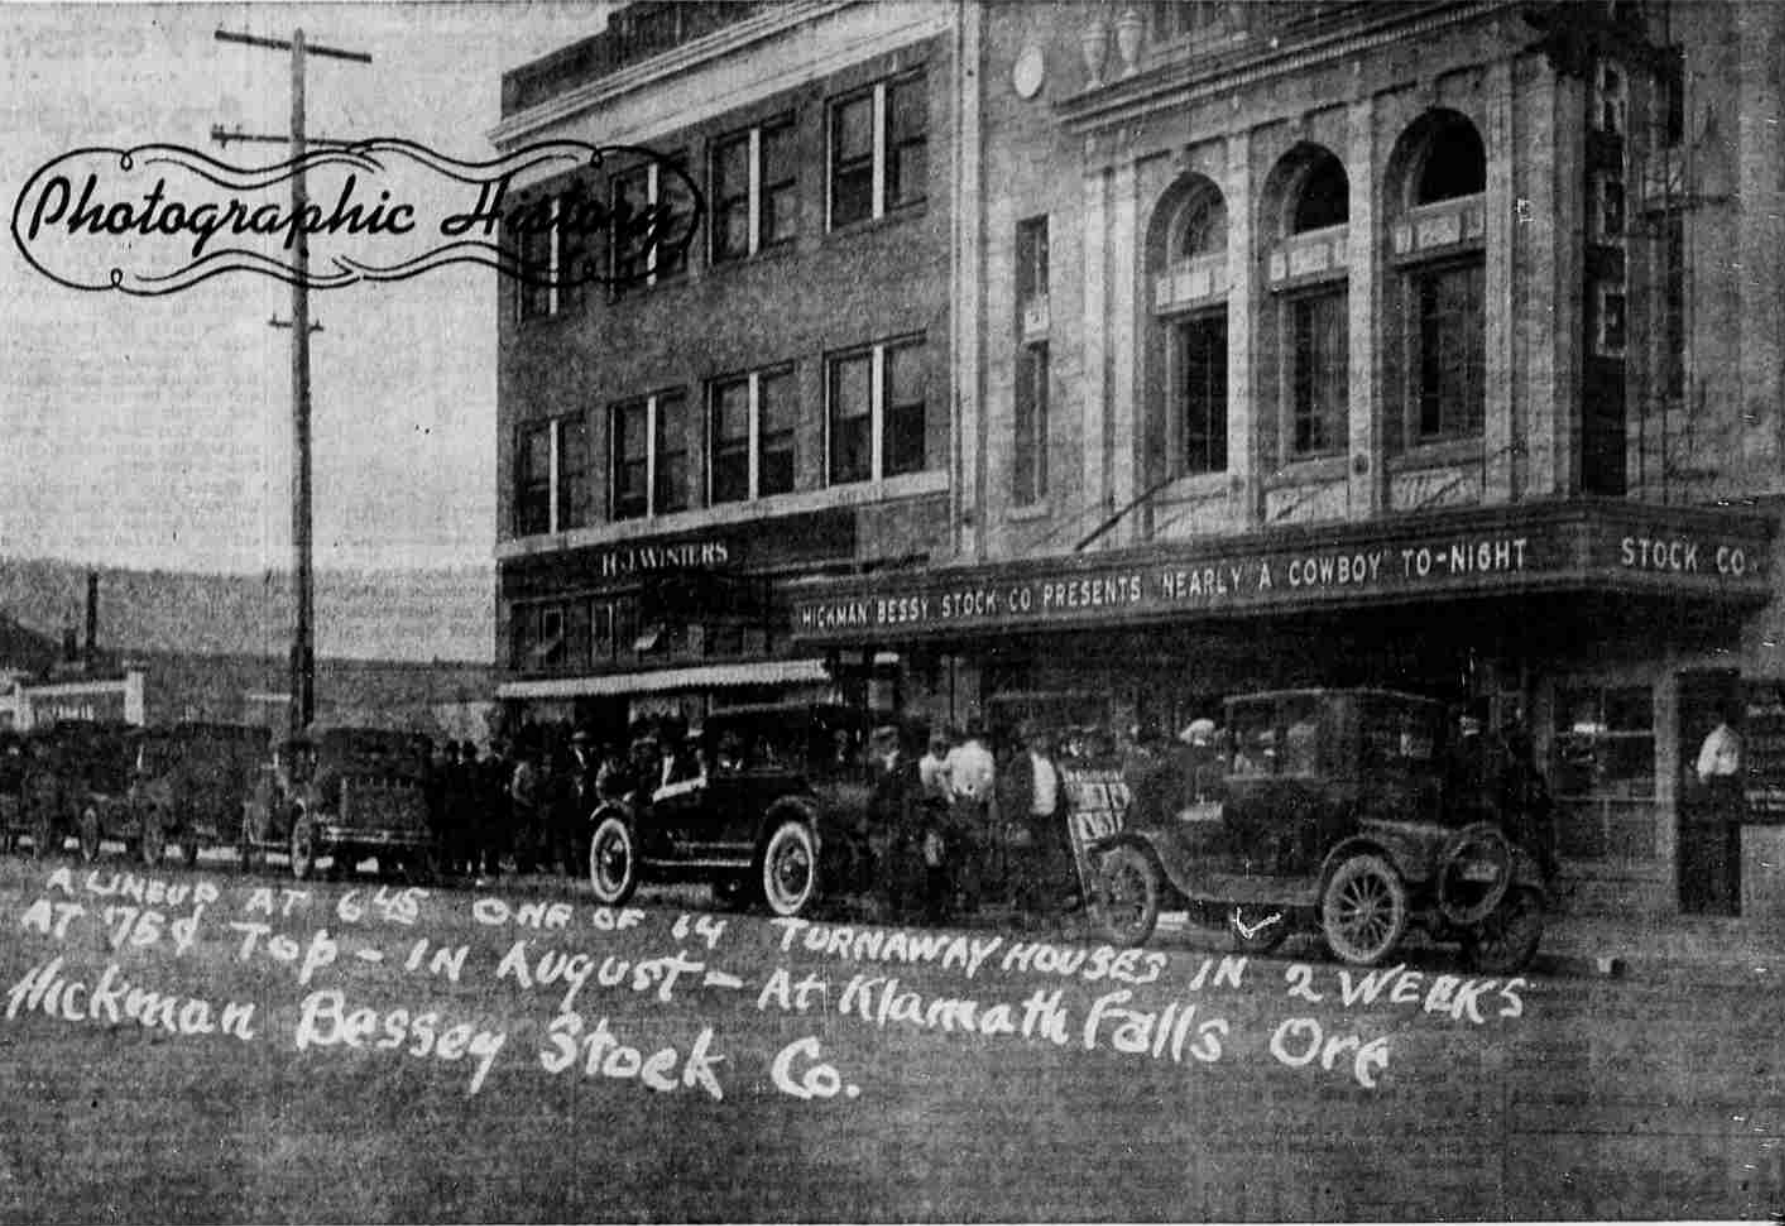 Photographic History
H.J. WINTERS
"HICKMAN BESSY STOCK CO PRESENTS "NEARLY A COWBOY" TO-NIGHT
STOCK CO.
A LINEUP AT 645 ONE OF 14 TURNAWAY HOUSES IN 2 WEEKS
AT 75¢ Top - IN AUGUST - At Klamath Falls Ore
Hickman Bessey Stock Co.